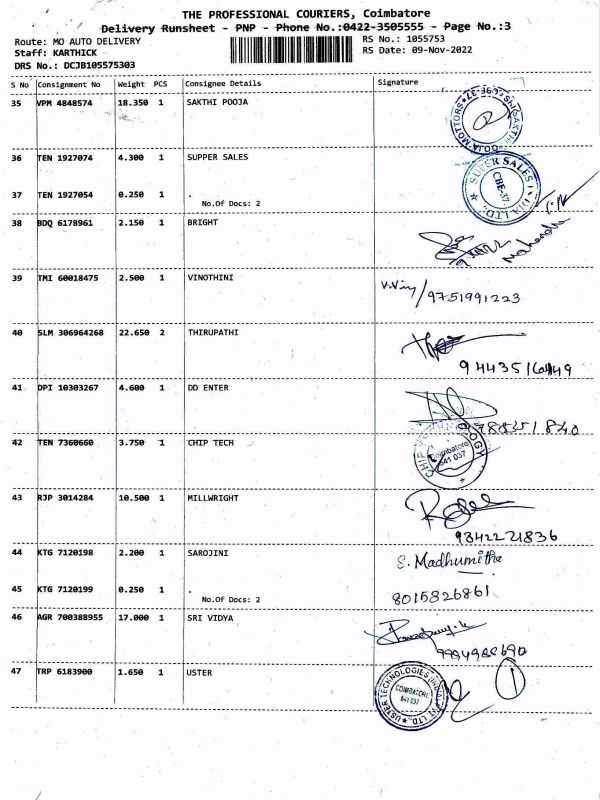 THE PROFESSIONAL COURIERS, Coimbatore
Delivery Runsheet - PNP - Phone No.:0422-3505555 - Page No.:3
Route: MO AUTO DELIVERY RS No.: 1055753
Staff: KARTHICK RS Date: 09-Nov-2022
DRS No.: DCJB105575303
S No Consignment No Weight PCS Consignee Details Signature
35 VPM 4848574 18.350 1 SAKTHI POOJA
36 TEN 1927074 4.300 1 SUPPER SALES
SUPER SALES INDIA LTD.
CBE-37.
37 TEN 1927054 0.250 1 .
No.Of Docs: 2
38 BDQ 6178961 2.150 1 BRIGHT
39 TMI 60018475 2.500 1 VINOTHINI
9751991223
40 SLM 306964268 22.650 2 THIRUPATHI
41 DPI 10303267 4.600 1 DD ENTER
42 TEN 7360660 3.750 1 CHIP TECH
Coimbatore
641 037
43 RJP 3014284 10.500 1 MILLWRIGHT
9342221836
44 KTG 7120198 2.200 1 SAROJINI
S. Madhumitha
45 KTG 7120199 0.250 1 .
No.Of Docs: 2
8015826861
46 AGR 700388955 17.000 1 SRI VIDYA
47 TRP 6183900 1.650 1 USTER
COIMBATORE
641 037